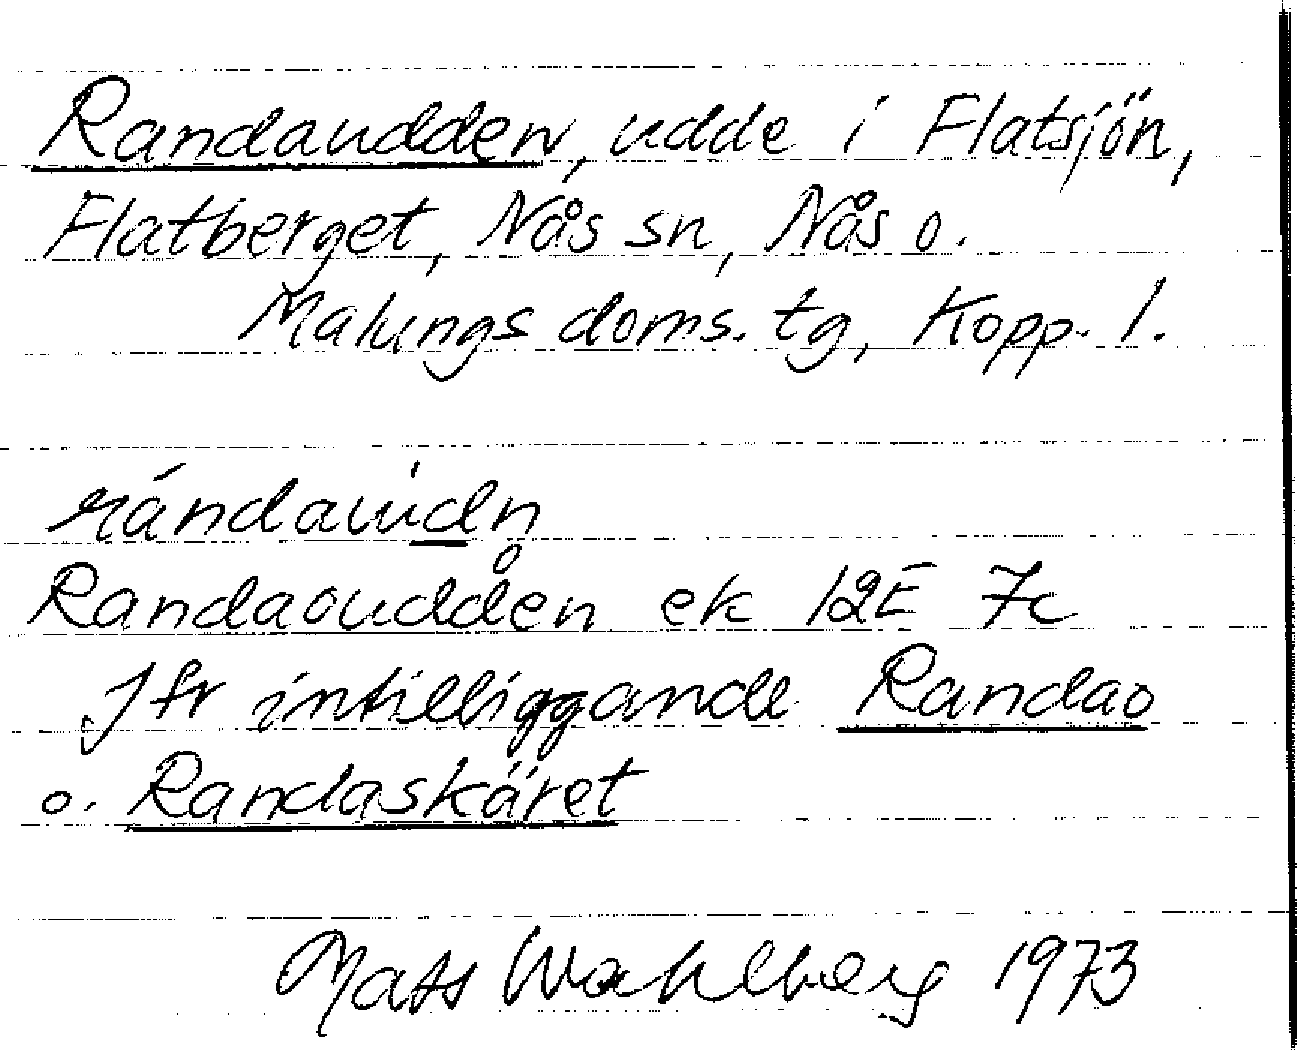 Randaudden, udde i Flatsjön,
Flatberget, Nås sn, Nås o.
Malungs doms. tg, Kopp. l.
Randaoudden ek 12E 7c
Jfr intilliggande Randao
o. Randaskäret
Mats Wahlberg 1973